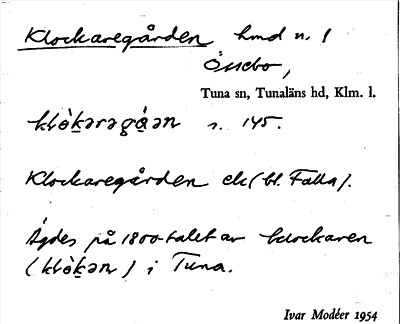 Klockaregården hmd n. 1
Össebo,
Tuna sn, Tunaläns hd, Klm. l.
s. 145.
Klockaregården ek (bl. Falla).
Ägdes på 1800-talet av klockaren
i Tuna.
Ivar Modéer 1954